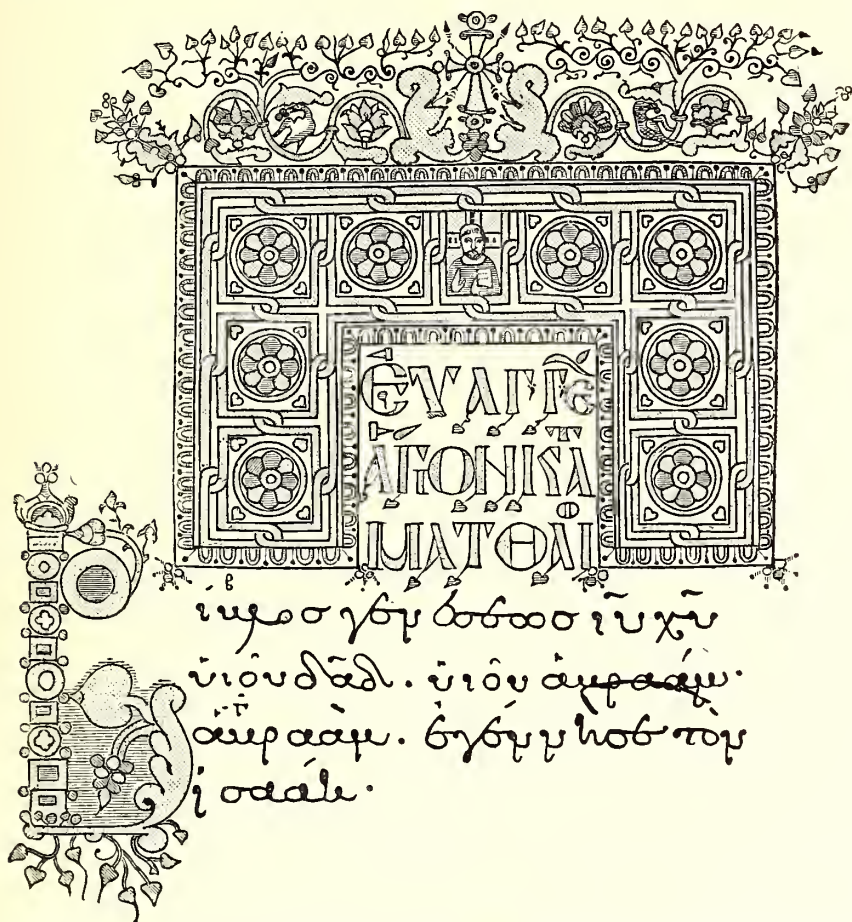 ΕΥΑΓΓΕ
ΛΙΟΝ ΚΑΤ
ΜΑΤΘΑΙΟ
Βίβλοσ γενέσεωσ ιῦ χῦ
ὑιοῦ δᾱδ. ὑιοῦ ἀβραάμ·
ἀβραὰμ. ἐγέννησε τὸν
ἰσαάκ·